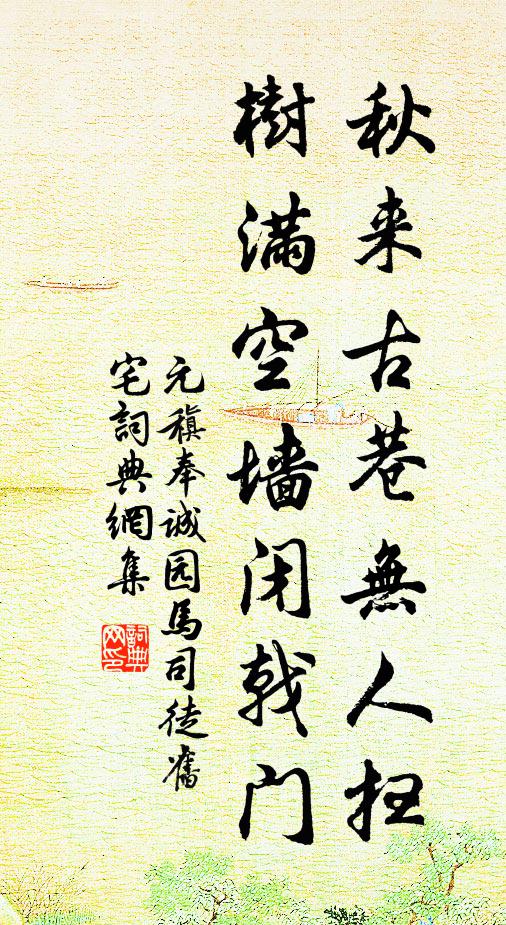 秋来古巷無人扫
樹满空墙闭戟门
元稹奉诚园馬司徒舊
宅詞典網集
詞典
网印